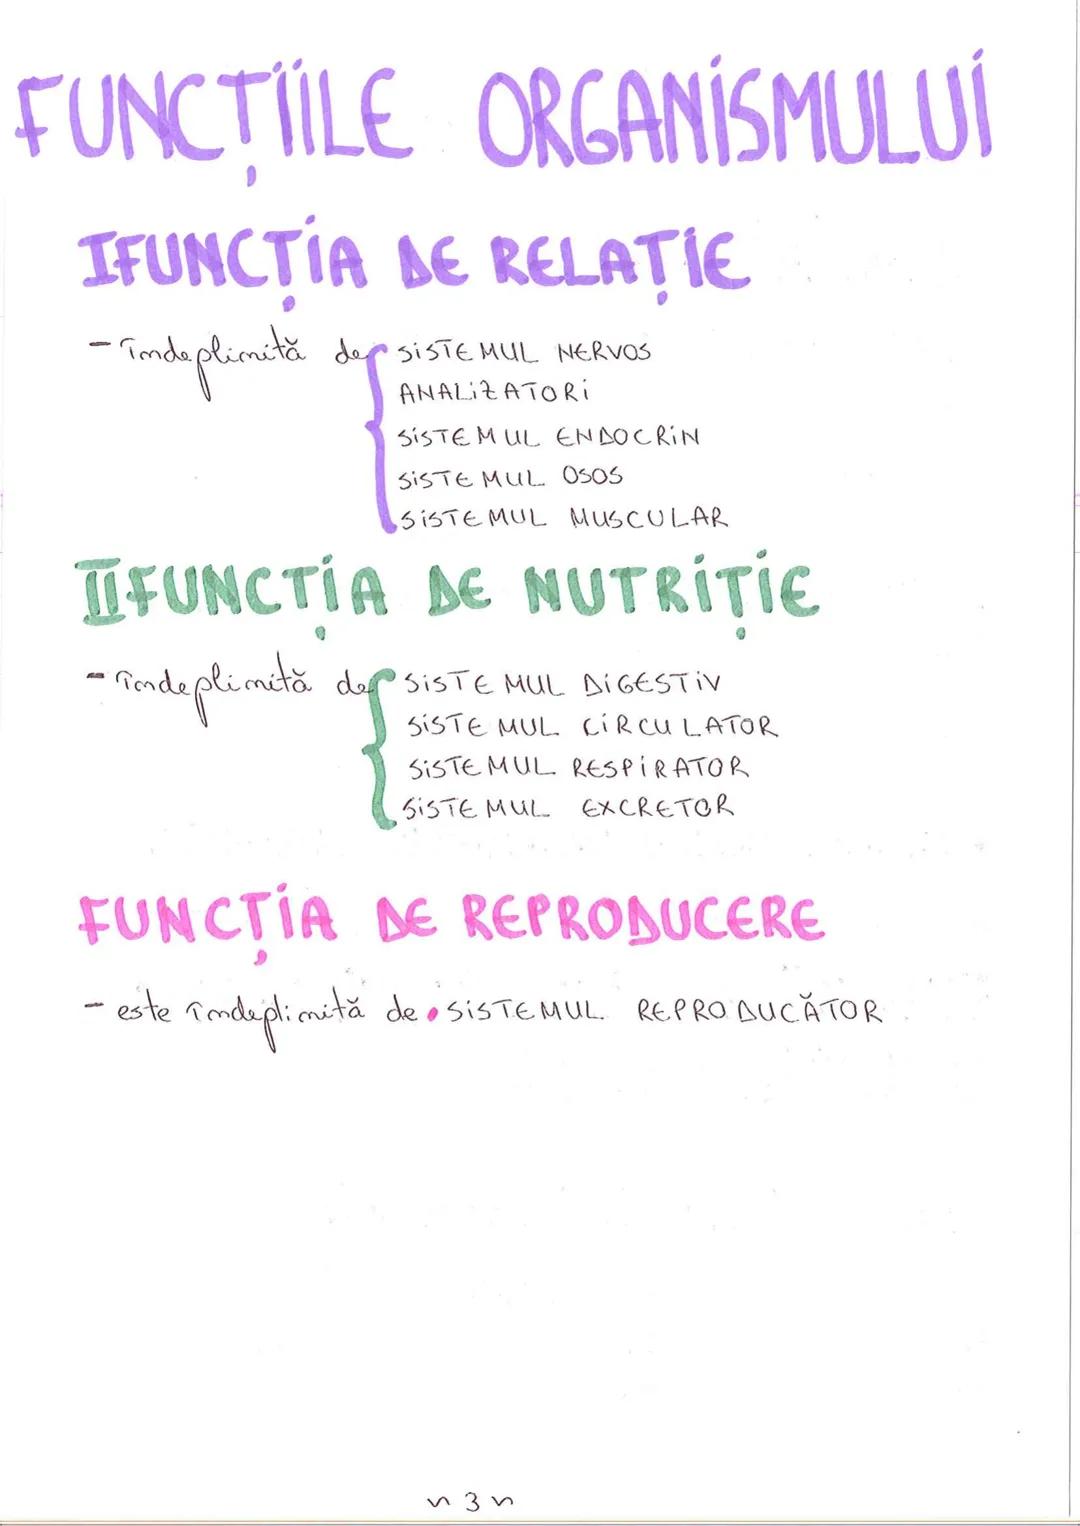 FUNCȚIILE ORGANISMULUI
I FUNCȚIA DE RELAȚIE
- îndeplinită de SISTEMUL NERVOS
ANALIZATORI
SISTEMUL ENDOCRIN
SISTEMUL OSOS
SISTEMUL MUSCULAR
II FUNCȚIA DE NUTRIȚIE
- îndeplinită de SISTEMUL DIGESTIV
SISTEMUL CIRCULATOR
SISTEMUL RESPIRATOR
SISTEMUL EXCRETOR
FUNCȚIA DE REPRODUCERE
- este îndeplinită de • SISTEMUL REPRODUCĂTOR
~ 3 ~